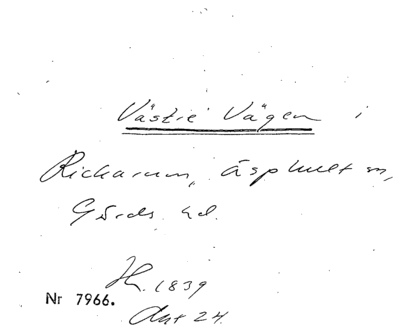 Västre Vägen i
Rickarum, Äsphult sn,
Gärds hd.
H. 1839
Nr 7966.
Akt 24.